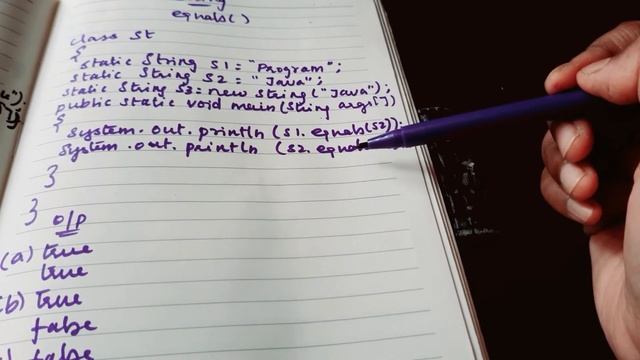 equals()
class St
{
static String S1 = "Program";
static String S2 = "Java";
static String S3 = new String("Java");
public static void main(String args[])
{
System.out.println (S1.equals(S2));
System.out.println (S2.equa
}
}
O/P
(a) True
True
(b) True
false
false